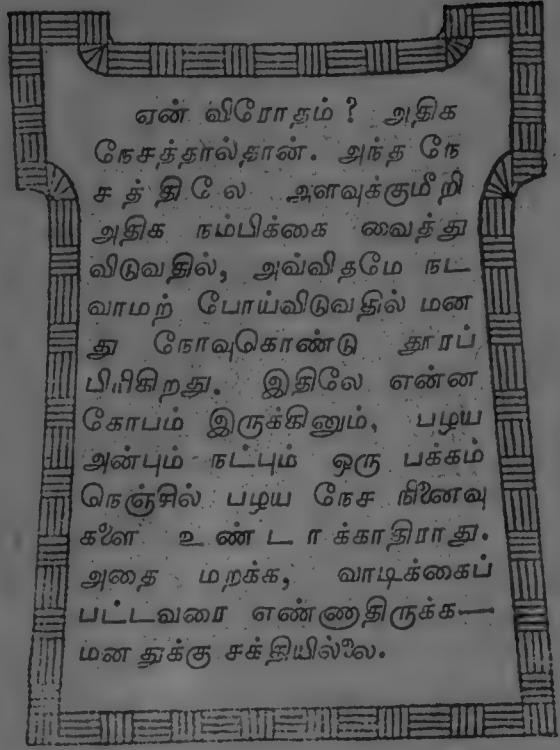 ஏன் விரோதம்? அதிக
நேசத்தால்தான். அந்த நே
சத்திலே அளவுக்குமீறி
அதிக நம்பிக்கை வைத்து
விடுவதில், அவ்விதமே நட
வாமற் போய்விடுவதில் மன
து நோவுகொண்டு தூரப்
பிரிகிறது. இதிலே என்ன
கோபம் இருக்கினும், பழய
அன்பும் நட்பும் ஒரு பக்கம்
நெஞ்சில் பழய நேச நினைவு
களை உண்டாக்காதிராது.
அதை மறக்க, வாடிக்கைப்
பட்டவரை எண்ணாதிருக்க—
மனதுக்கு சக்தியில்லை.